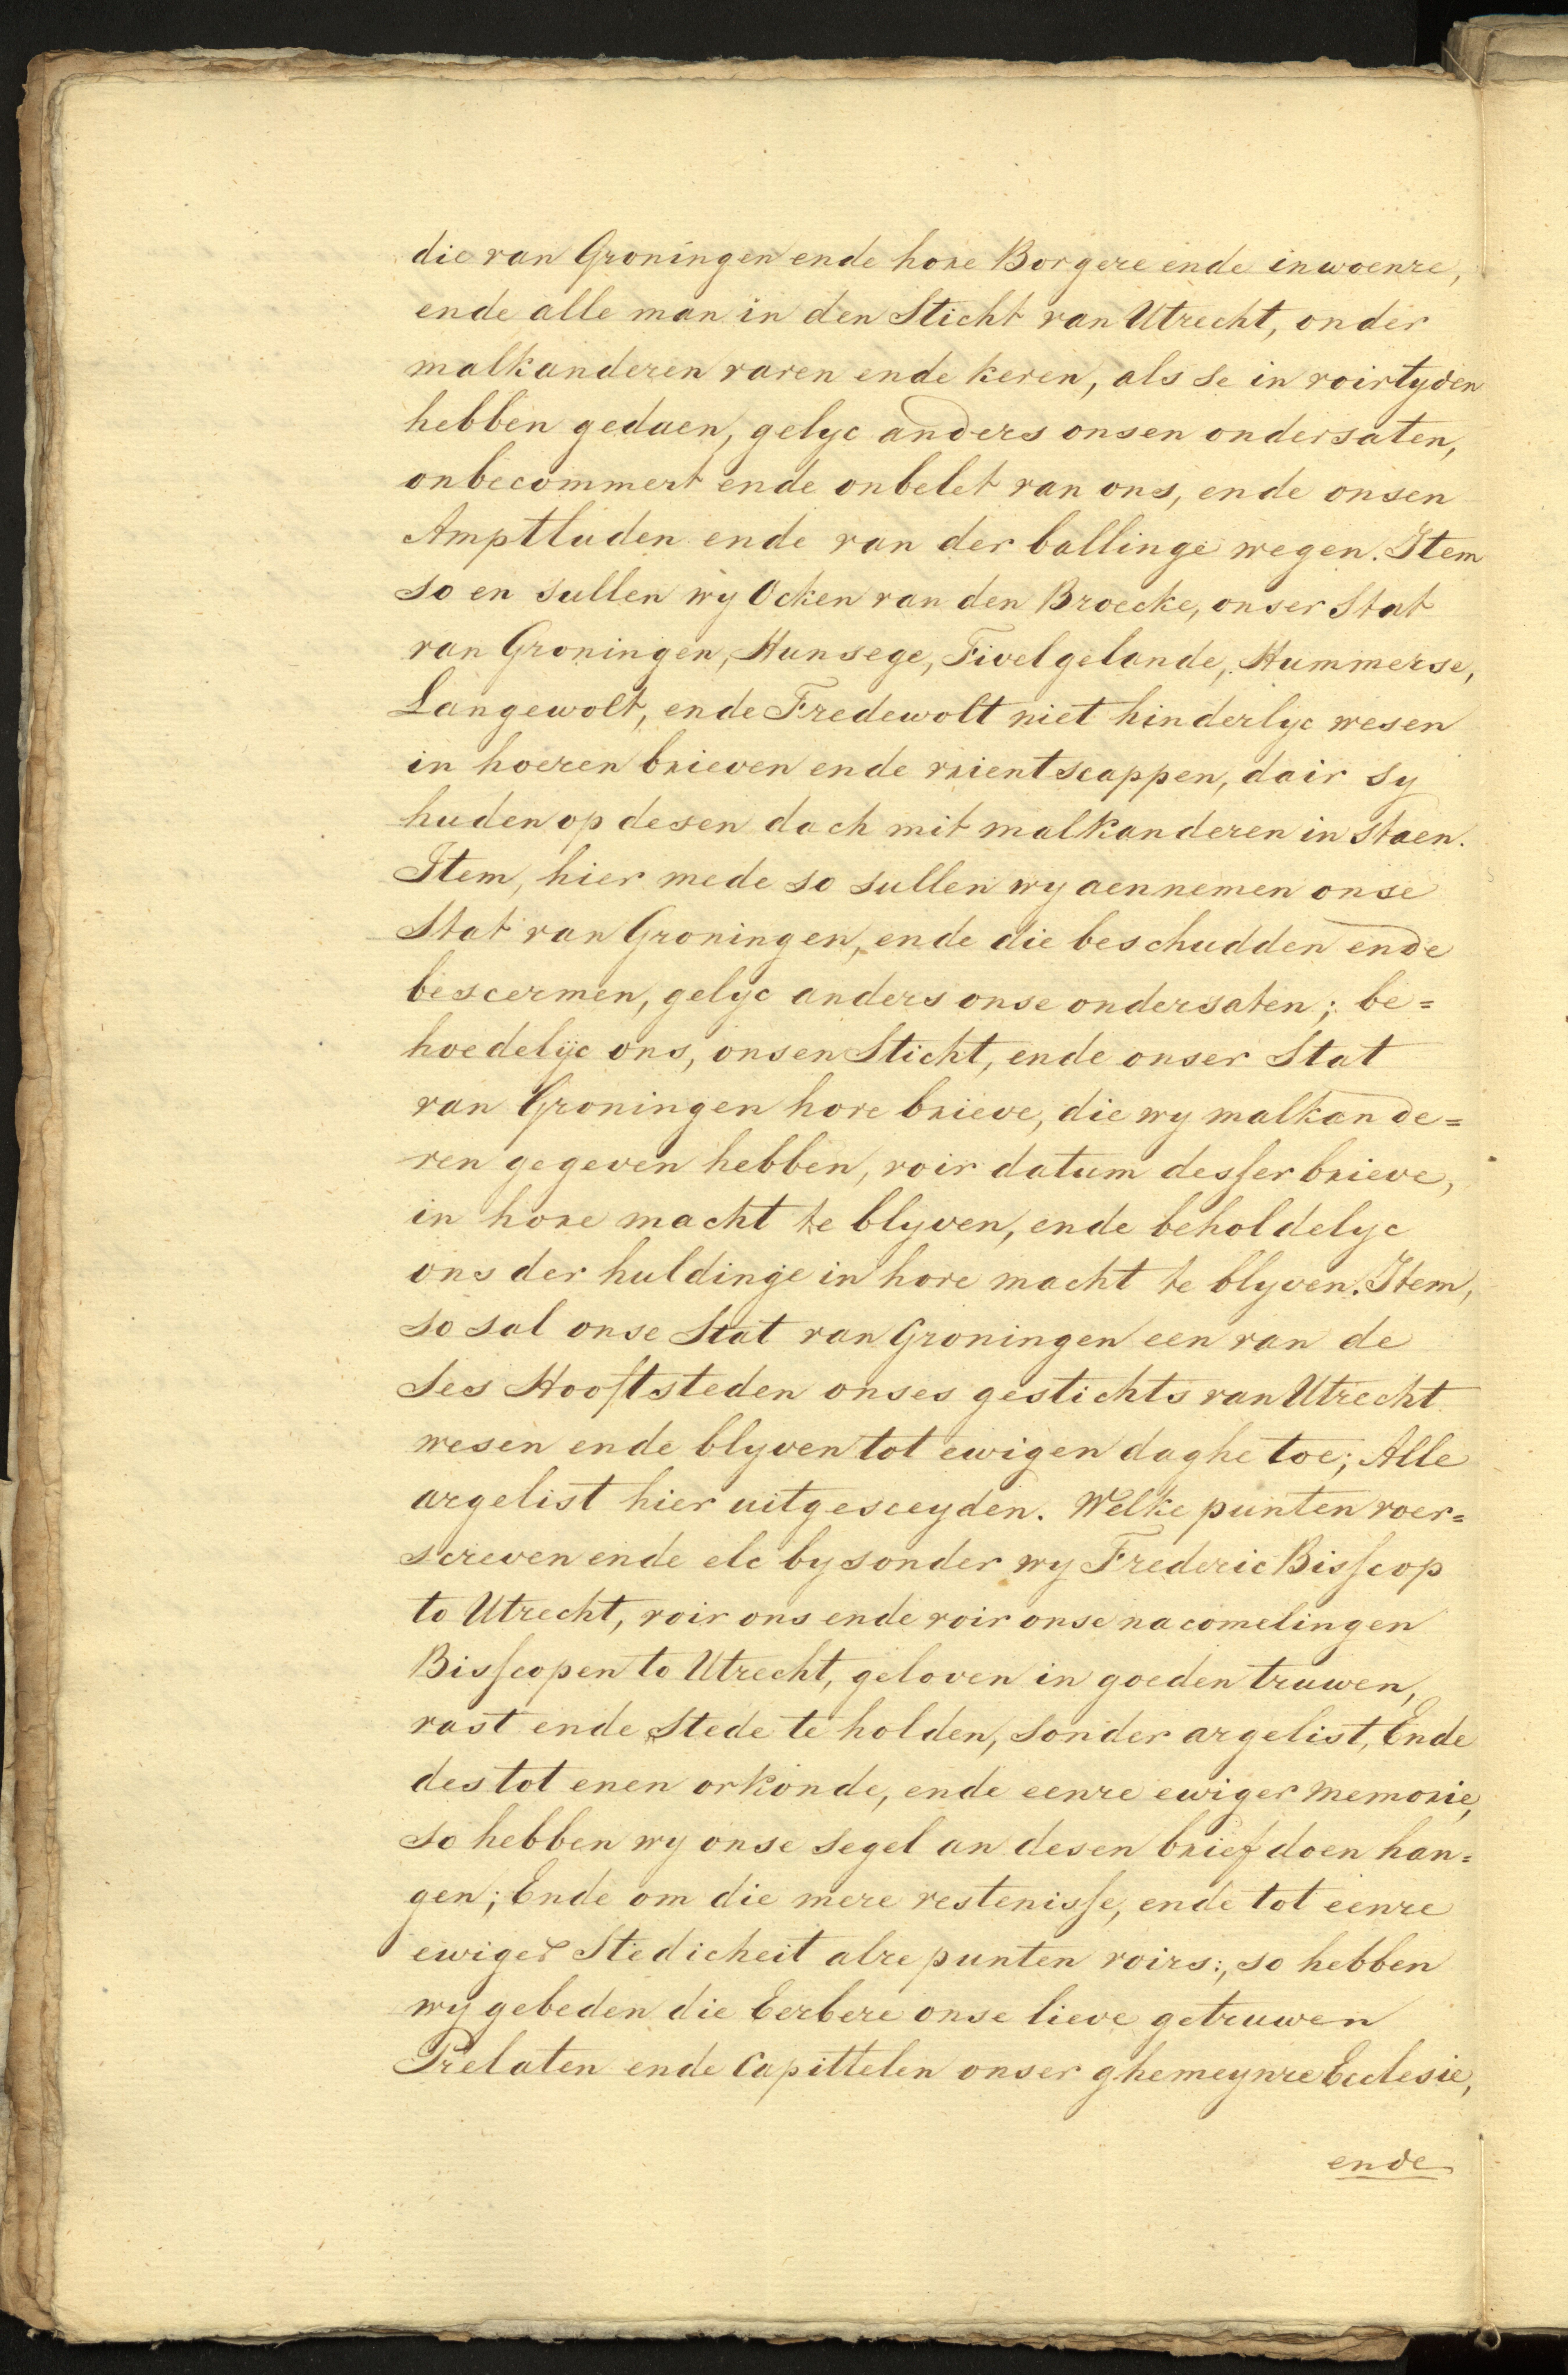 die van Groningen ende hore Borgere ende inwoenre,
ende alle man in den Sticht van Utrecht, onder
malkanderen varen ende keren, als se in voirtyden
hebben gedaen, gelyc anders onsen ondersaten,
onbecommert ende onbelet van ons, ende onsen
Amptluden ende van der ballinge wegen. Item
so en sullen wy Ocken van den Broecke, onser Stat
van Groningen, Hunsege, Fivelgelande, Hummerse,
Langewolt, ende Fredewolt niet hinderlyc wesen
in hoeren brieven ende vrientscappen, dair sy
huden op desen dach mit malkanderen in staen.
Item, hier mede so sullen wy aennemen onse
Stat van Groningen, ende die beschudden ende
bescermen, gelyc anders onse ondersaten; be=
hoedelyc ons, onsen Sticht, ende onser Stat
van Groningen hore brieve, die wy malkande=
ren gegeven hebben, voir datum desser brieve,
in hore macht te blyven, ende beholdelyc
ons der huldinge in hore macht te blyven. Item,
so sal onse Stat van Groningen een van de
ses Hooftsteden onses gestichts van Utrecht
wesen ende blyven tot ewigen daghe toe; Alle
argelist hier uitgesceyden. Welke punten voer=
screven ende elc bysonder wy Frederic Bisscop
to Utrecht, voir ons ende voir onse nacomelingen
Bisscopen to Utrecht, geloven in goeden truwen,
vast ende stede te holden, sonder argelist, Ende
des tot enen orkonde, ende eenre ewiger memorie,
so hebben wy onse segel an desen brief doen han=
gen; Ende om die mere vestenisse, ende tot eenre
ewiger Stedicheit alre punten voirs:, so hebben
wy gebeden die Eerbere onse lieve getruwen
Prelaten ende Capittelen onser ghemeynre Ecclesie,
ende